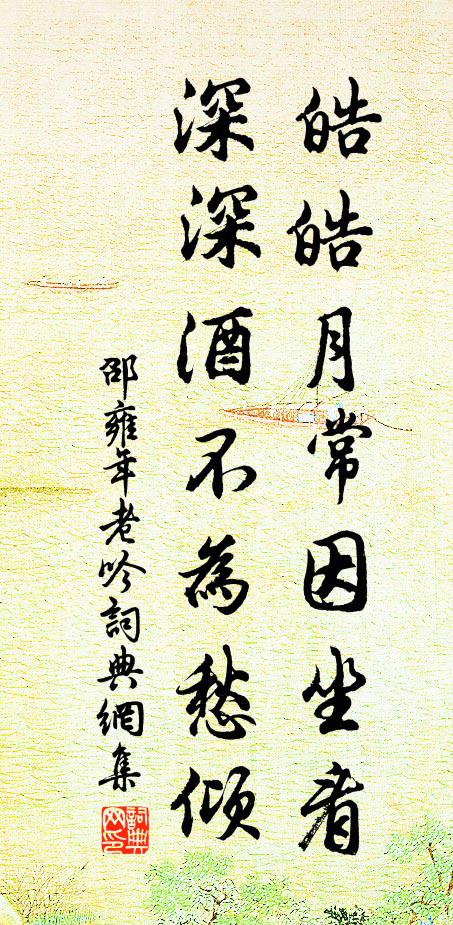 皓皓月常因坐看
深深酒不為愁傾
邵雍年老吟詞典網集
詞典網印